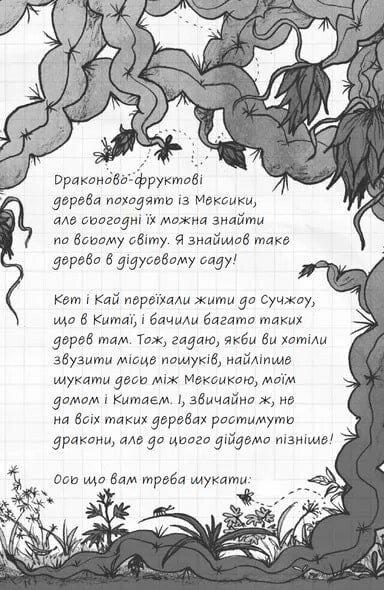 Драконово-фруктові
дерева походять із Мексики,
але сьогодні їх можна знайти
по всьому світу. Я знайшов таке
дерево в дідусевому саду!
Кет і Кай переїхали жити до Сучжоу,
що в Китаї, і бачили багато таких
дерев там. Тож, гадаю, якби ви хотіли
звузити місце пошуків, найліпше
шукати десь між Мексикою, моїм
домом і Китаєм. І, звичайно ж, не
на всіх таких деревах ростимуть
дракони, але до цього дійдемо пізніше!
Ось що вам треба шукати: